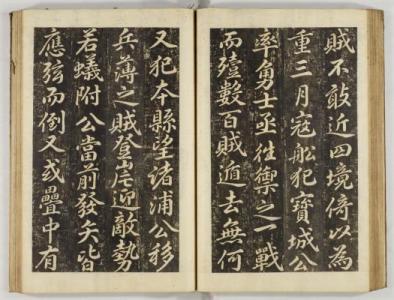 賊不敢近四境倚以為
重三月寇舩犯寳城公
率勇士亟徃禦之一戰
而殪數百賊遁去無何
又犯本縣望諸浦公移
兵薄之賊登岸迎敵勢
若蟻附公當前發矢皆
應弦而倒又或疊中有